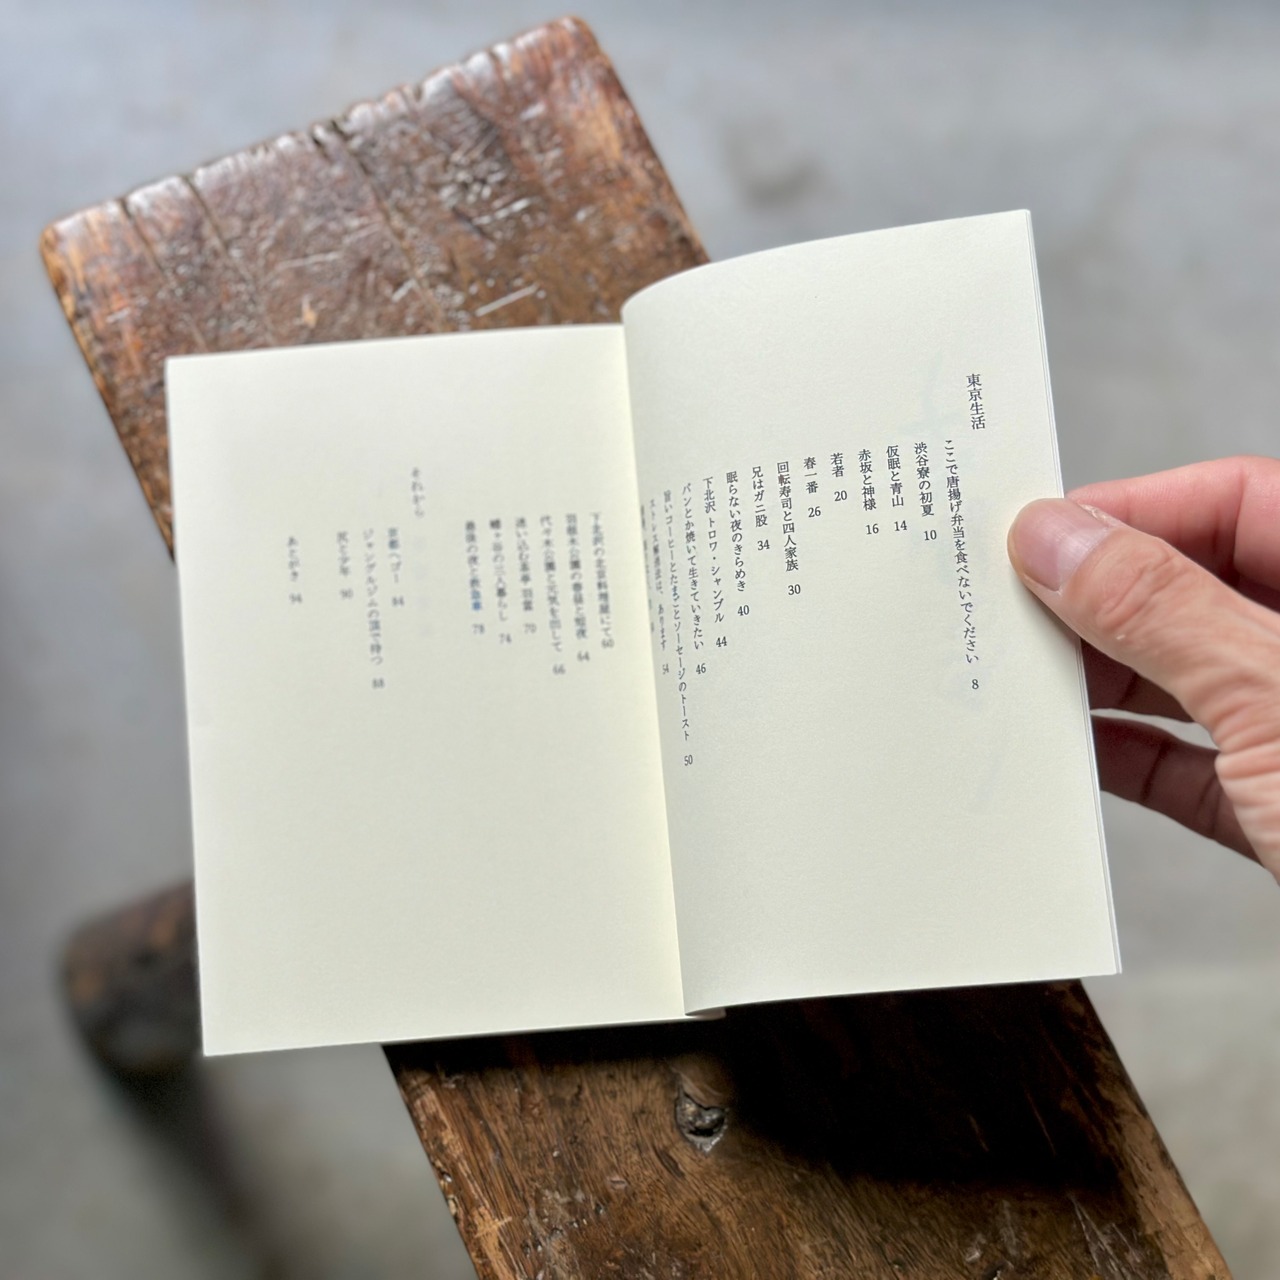 東京生活
ここで唐揚げ弁当を食べないでください 8
渋谷寮の初夏 10
仮眠と青山 14
赤坂と神様 16
若者 20
春一番 26
回転寿司と四人家族 30
兄はガニ股 34
眠らない夜のきらめき 40
下北沢 トロワ・シャンブル 44
パンとか焼いて生きていきたい 46
旨いコーヒーとたまごとソーセージのトースト 50
ストレス解消法は、あります 54
下北沢の北京料理屋にて 60
羽根木公園の春昼と短夜 64
代々木公園と元気を出して 66
迷い込む茶亭 羽當 70
幡ヶ谷の二人暮らし 74
最後の夜と救急車 78
それから
京都へゴー 84
ジャングルジムの頂で待つ 88
尻と少年 90
あとがき 94